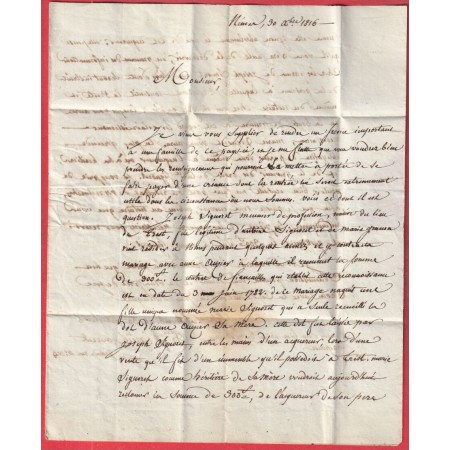 Nimes, 30 Xbre 1816
Monsieur,
Je viens vous supplier de rendre un service important
à une famille de ce pays-ci; et je me flatte que vous voudrez bien
prendre les renseignements qui peuvent la mettre à portée de se
faire payer d'une créance dont la rentrée lui serait extrêmement
utile dans la circonstance où nous sommes. voici ce dont il est
question. Joseph Viguerot meunier de profession, natif du lieu
de fils légitime d'antoine Viguerot et de marie
vint résider à Nimes pendant quelques années et contracta
mariage avec anne Cuyier à laquelle il reconnut la somme
de 300 ₶. le contrat de fiançailles qui établit cette reconnaissance
est en date du 3 juin 1782. de ce Mariage naquit une
fille unique nommée marie Viguerot qui a seule recueilli la
dot d'anne Cuyier Sa Mère. cette dot fut laissée par
Joseph Viguerot, entre les mains d'un acquéreur, lors d'une
vente qu'il fit d'un immeuble qu'il possédait à marie
Viguerot comme héritière de Sa Mère voudrait aujourd'hui
retirer la Somme de 300 ₶, de l'acquéreur de Son père